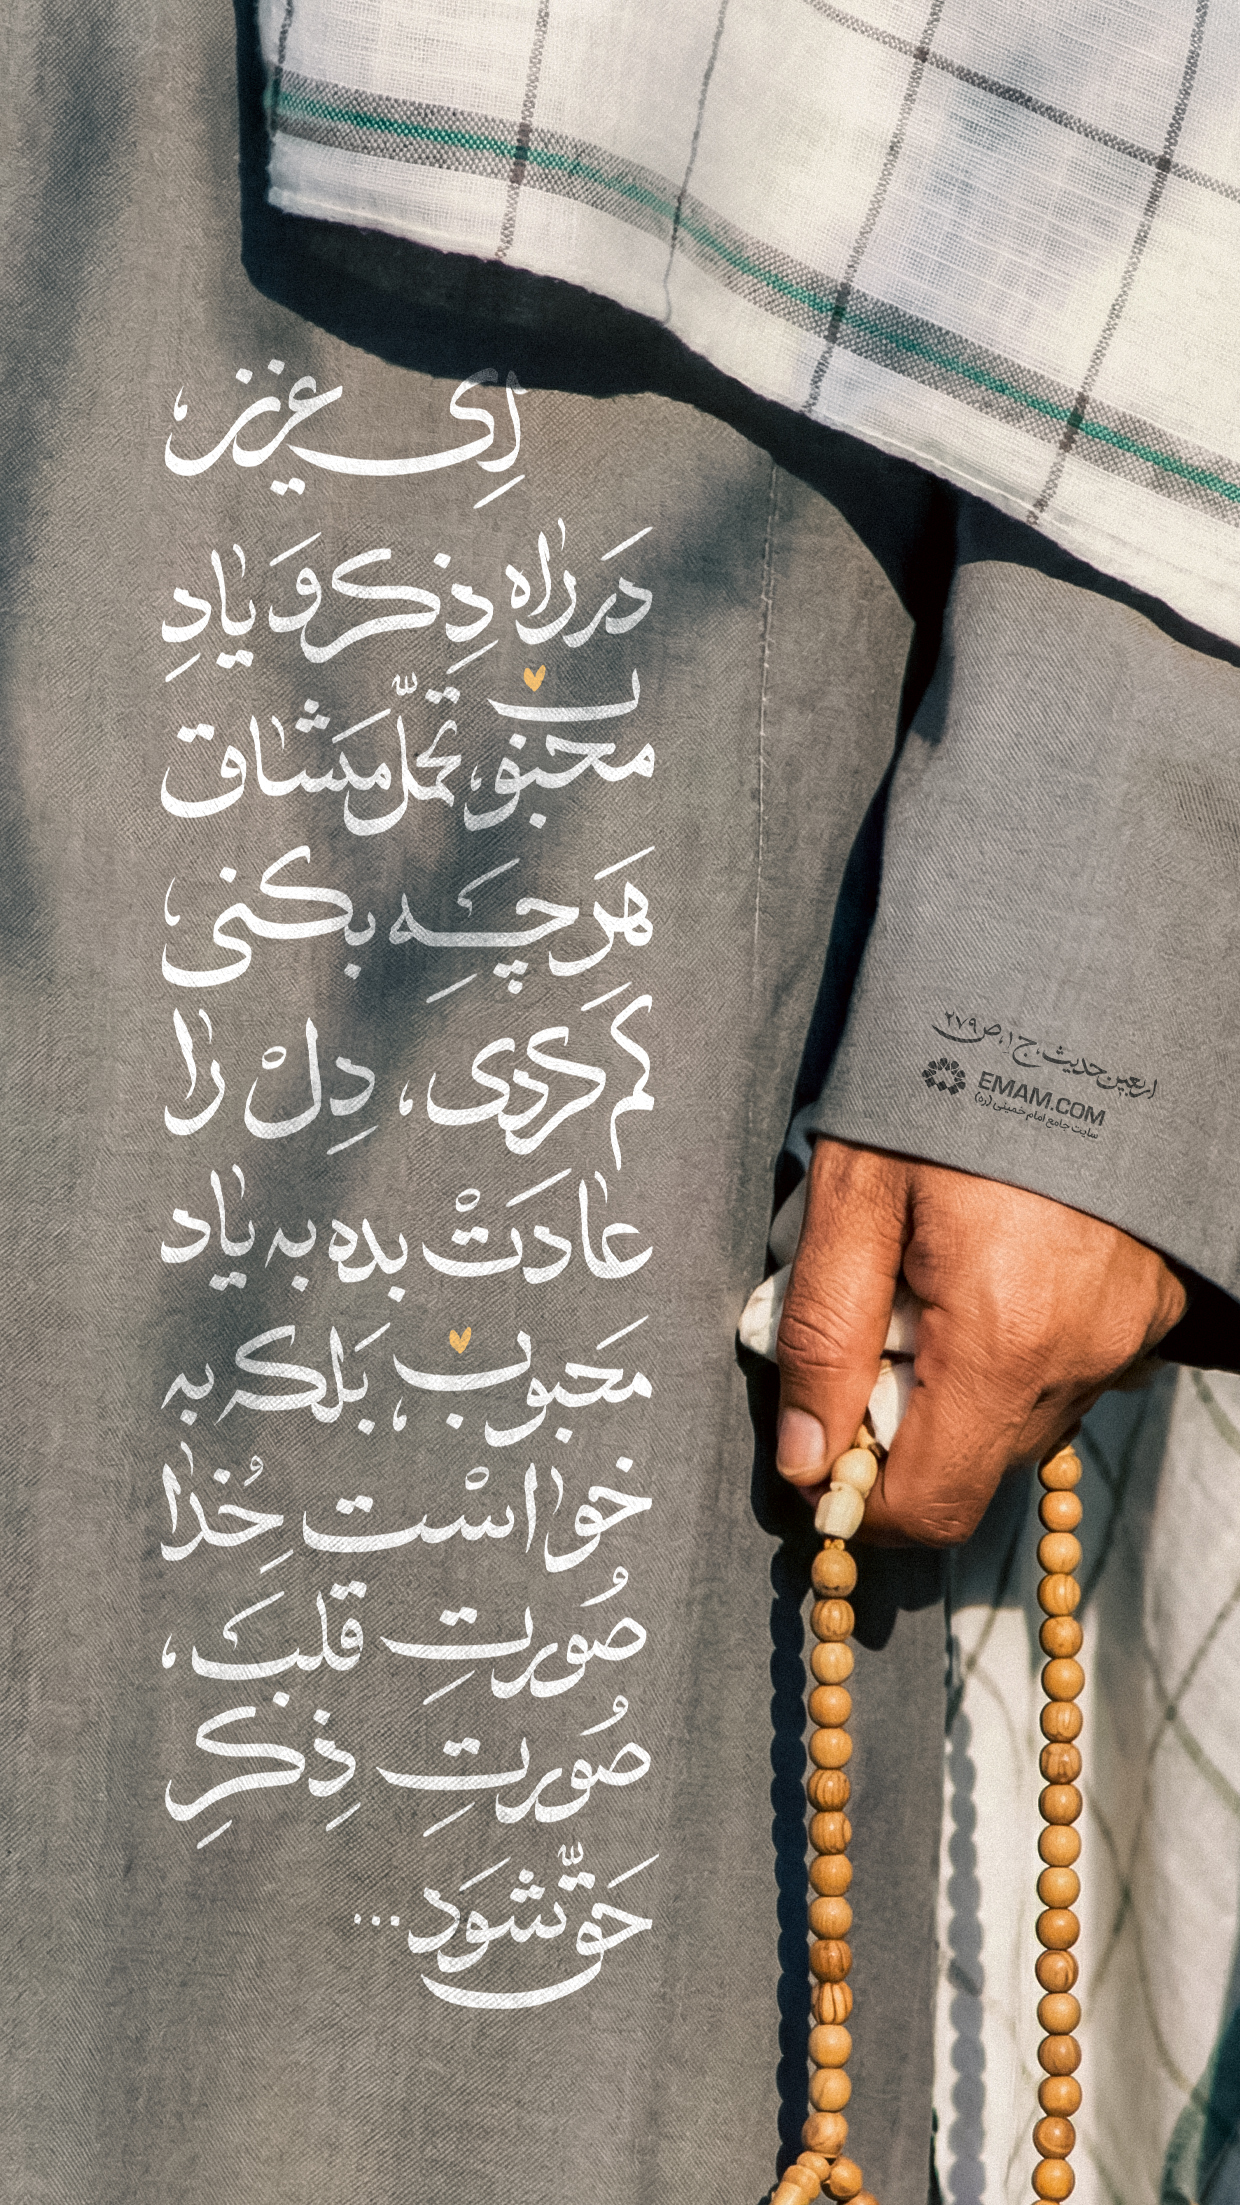 اِی عزیز،
دَر راه ذِکر وَ یادِ
محبوب، تحمّل مَشاق
هَر چَه بکنی،
کَم کَردی، دِلْ را
عادَتْ بده به یاد
مَحبوب، بَلکه به
خواسْت خُدا
صُورتِ قلبَت،
صُورتِ ذِکرِ
حَقّ شَوَد...
اربعین حدیث، ج ۱، ص ۲۷۹
EMAM.COM
سایت جامع امام خمینی (ره)